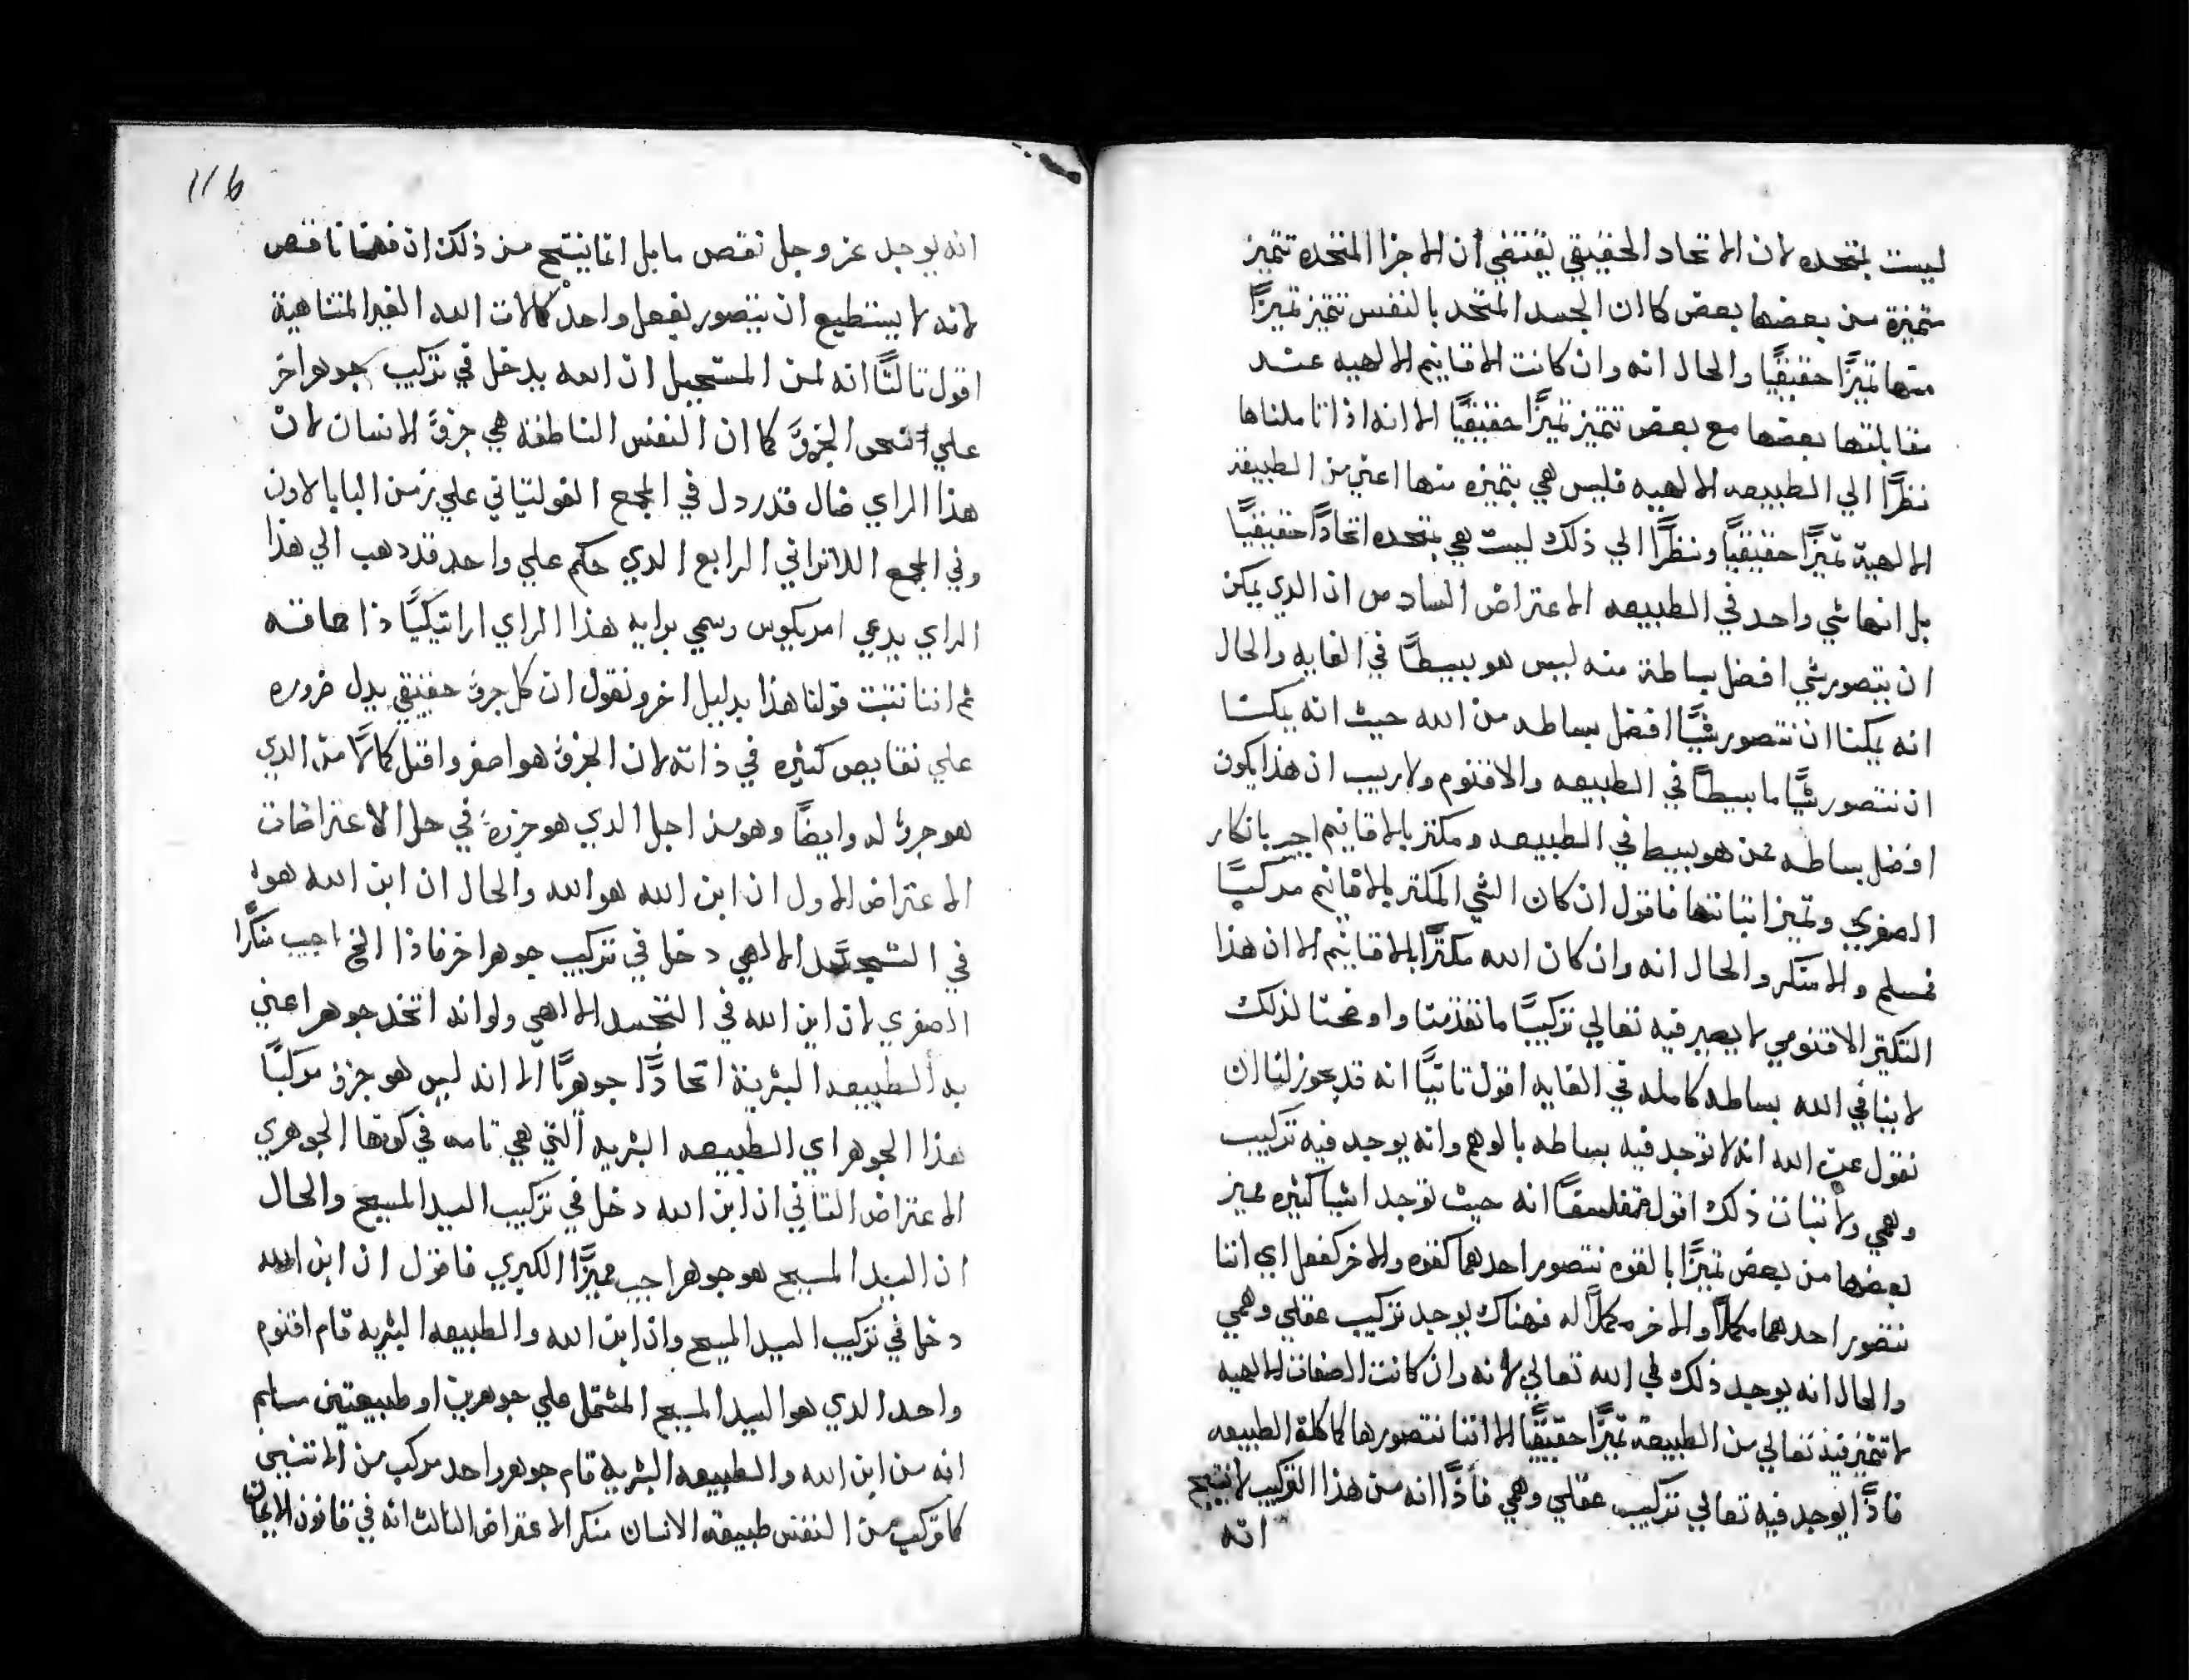 ليست بمتحده لان الاتحاد الحقيقي يقتضي ان الاجزا المتحده تتميز
متميزة من بعضها بعض كما ان الجسد المتحد بالنفس تتميز تميزًا
منها تميزًا حقيقيًا والحال انه وان كانت الاقانيم الالهيه عند
مقابلتها بعضها مع بعض تتميز تميزًا حقيقيًا الا انه اذا تاملناها
نظرًا الي الطبيعه الالهيه فليس هي بتميزه منها اعني من الطبيعة
الالهية تميزًا حقيقيًا ونظرًا الي ذلك ليست هي بمتحده اتحادًا حقيقيًا
بل انها شي واحد في الطبيعه الاعتراض السادس ان الدي يمكن
ان يتصور شي افضل بساطة منه ليس هو بسيطًا في الغايه والحال
انه يمكنا ان نتصور شيًا افضل بساطه من الله حيث انه يمكنا
ان نتصور شيًا ما بسيطًا في الطبيعه والاقنوم ولا ريب ان هذا يكون
افضل بساطه ممن هو بسيط في الطبيعه ومكتر بالاقانيم اجيب بانكار
الصغري وتميز اتباتها فاقول ان كان الشي المكتر بالاقانيم مركبًا
فمسلم والا منكر والحال انه وان كان الله مكترًا بالاقانيم الا ان هذا
التكتر الاقنومي لا يصير فيه تعالي تركيبًا ما تقدمنا واوضحنا لذلك
لا ينافي الله بساطه كامله في الغايه اقول تانيًا انه قد يجوز لنا ان
نقول عن الله انه لا توجد فيه بساطه بالوهم وانه يوجد فيه تركيب
وهمي ولاتبات ذلك اقول متفلسفًا انه حيث توجد اشيا كثيره مميز
بعضها من بعض تميزًا بالقوه نتصور احدهما كقوه والاخر كفعل اي اننا
نتصور احدهما مكملًا والاخر مكملًا له فهناك يوجد تركيب عقلي وهمي
والحال انه يوجد ذلك في الله تعالي لانه وان كانت الصفات الالهيه
لا تتميز فيه تعالي من الطبيعة تميزًا حقيقيًا الا اننا نتصورها كاكملة الطبيعه
فاذًا يوجد فيه تعالي تركيب عقلي وهمي فاذًا انه من هذا التركيب لا ينتج
انه
116
انه يوجد عز وجل نقص ما بل انما ينتج من ذلك ان فهمنا ناقص
لانه لا يستطيع ان يتصور بفعل واحد كمالات الله الغير المتناهية
اقول تالتًا انه لمن المستحيل ان الله يدخل في تركيب جوهر اخر
علي نحو الجزو كما ان النفس الناطقة هي جزو الانسان لان
هذا الراي ضال قد ردل في المجمع الفولتياني علي زمن البابا لاون
وفي المجمع اللاتراني الرابع الدي حكم علي واحد قد دهب الي هذا
الراي يدعي امريكوس وسمي برايه هذا الراي اراتيكيًا ذا حماقه
ثم اننا نتبت قولنا هذا بدليل اخر ونقول ان كل جزو حقيقي يدل ضروره
علي نقايص كثيره في ذاته لان الجزو هو اصغر واقل كمالًا من الدي
هو جزو له وايضًا وهو من اجل الدي هو جزوه في حل الاعتراضات
الاعتراض الاول ان ابن الله هو الله والحال ان ابن الله هوا
في التجسد الالهي دخل في تركيب جوهر اخر فاذا الخ اجيب منكرًا
الصغري لان ابن الله في التجسد الالهي ولو انه اتخد جوهر اعني
به الطبيعه البشرية اتحادًا جوهريًا الا انه ليس هو جزو مركبًا
هذا الجوهر اي الطبيعه البشريه التي هي تامه في كونها الجوهري
الاعتراض التاني ان ابن الله دخل في تركيب السيد المسيح والحال
ان السيد المسيح هو جوهر اجيب مميزًا الكبري فاقول ان ابن الله
دخل في تركيب السيد المسيح وان ابن الله والطبيعه البشريه قام اقنوم
واحد الدي هو السيد المسيح المشتمل علي جوهرين او طبيعتين مسلم
انه من ابن الله والطبيعه البشرية قام جوهر واحد مركب من الاتنين
كما تركب من النفس طبيعة الانسان منكر الاعتراض التالت انه في قانون الايمان